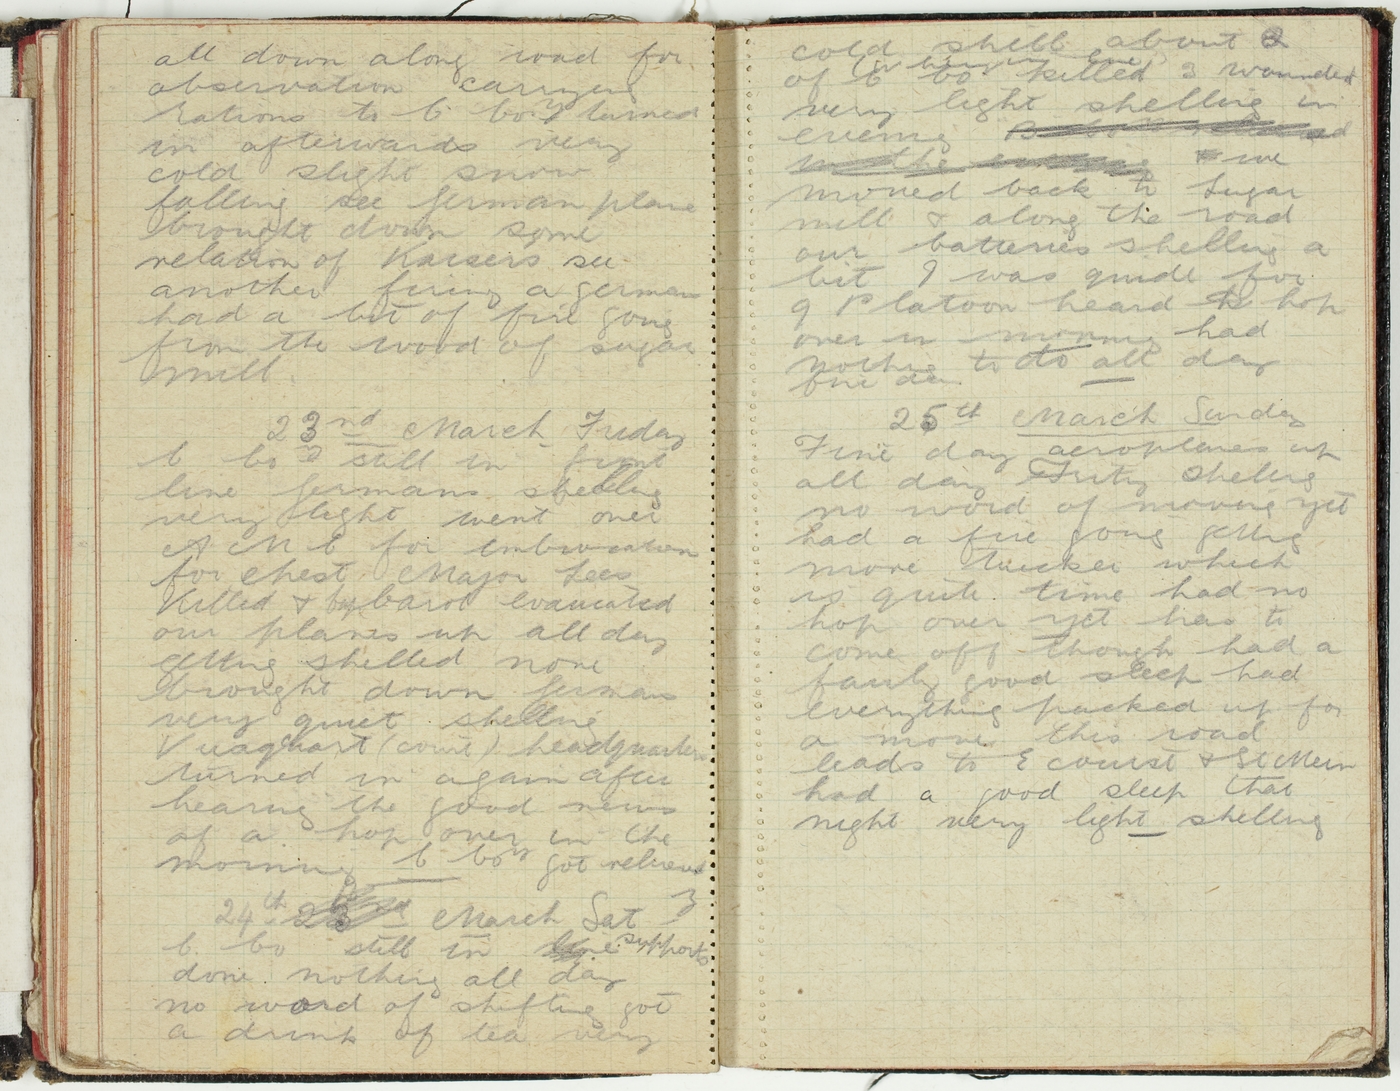 all down along road for
observation carrying
rations to C Coy turned
in afterwards very
cold slight snow
falling see German plane
brought down some
relation of Kaisers see
another firing a german
had a bit of fire going
from the wood of sugar
mill.
23rd March Friday
C Co still in front
line Germans shelling
very light went over
A M C for embrocation
for chest Major Lees
killed & evacuated
our planes up all day
getting shelled none
brought down Germans
very quiet shelling
Vraquart (court) headquarters
turned in again after
hearing the good news
of a hop over in the
morning C Coy got relieved
24th March Sat
C Co still in supports
done nothing all day
no word of shifting got
a drink of tea very
cold shell about 2
of C Co killed 3 wounded
very light shelling in
evening
we
moved back to Sugar
mill & along the road
our batteries shelling a
bit I was guide for
9 Platoon heard to hop
over in morning had
nothing to do all day
fine day
25th March Sunday
Fine day aeroplanes up
all day Fritz shelling
no word of moving yet
had a fire going getting
more tucker which
is quite time had no
hop over yet has to
come off though had a
fairly good sleep had
everything packed up for
a move this road
leads to Ecourst & St Mein
had a good sleep that
night very light shelling